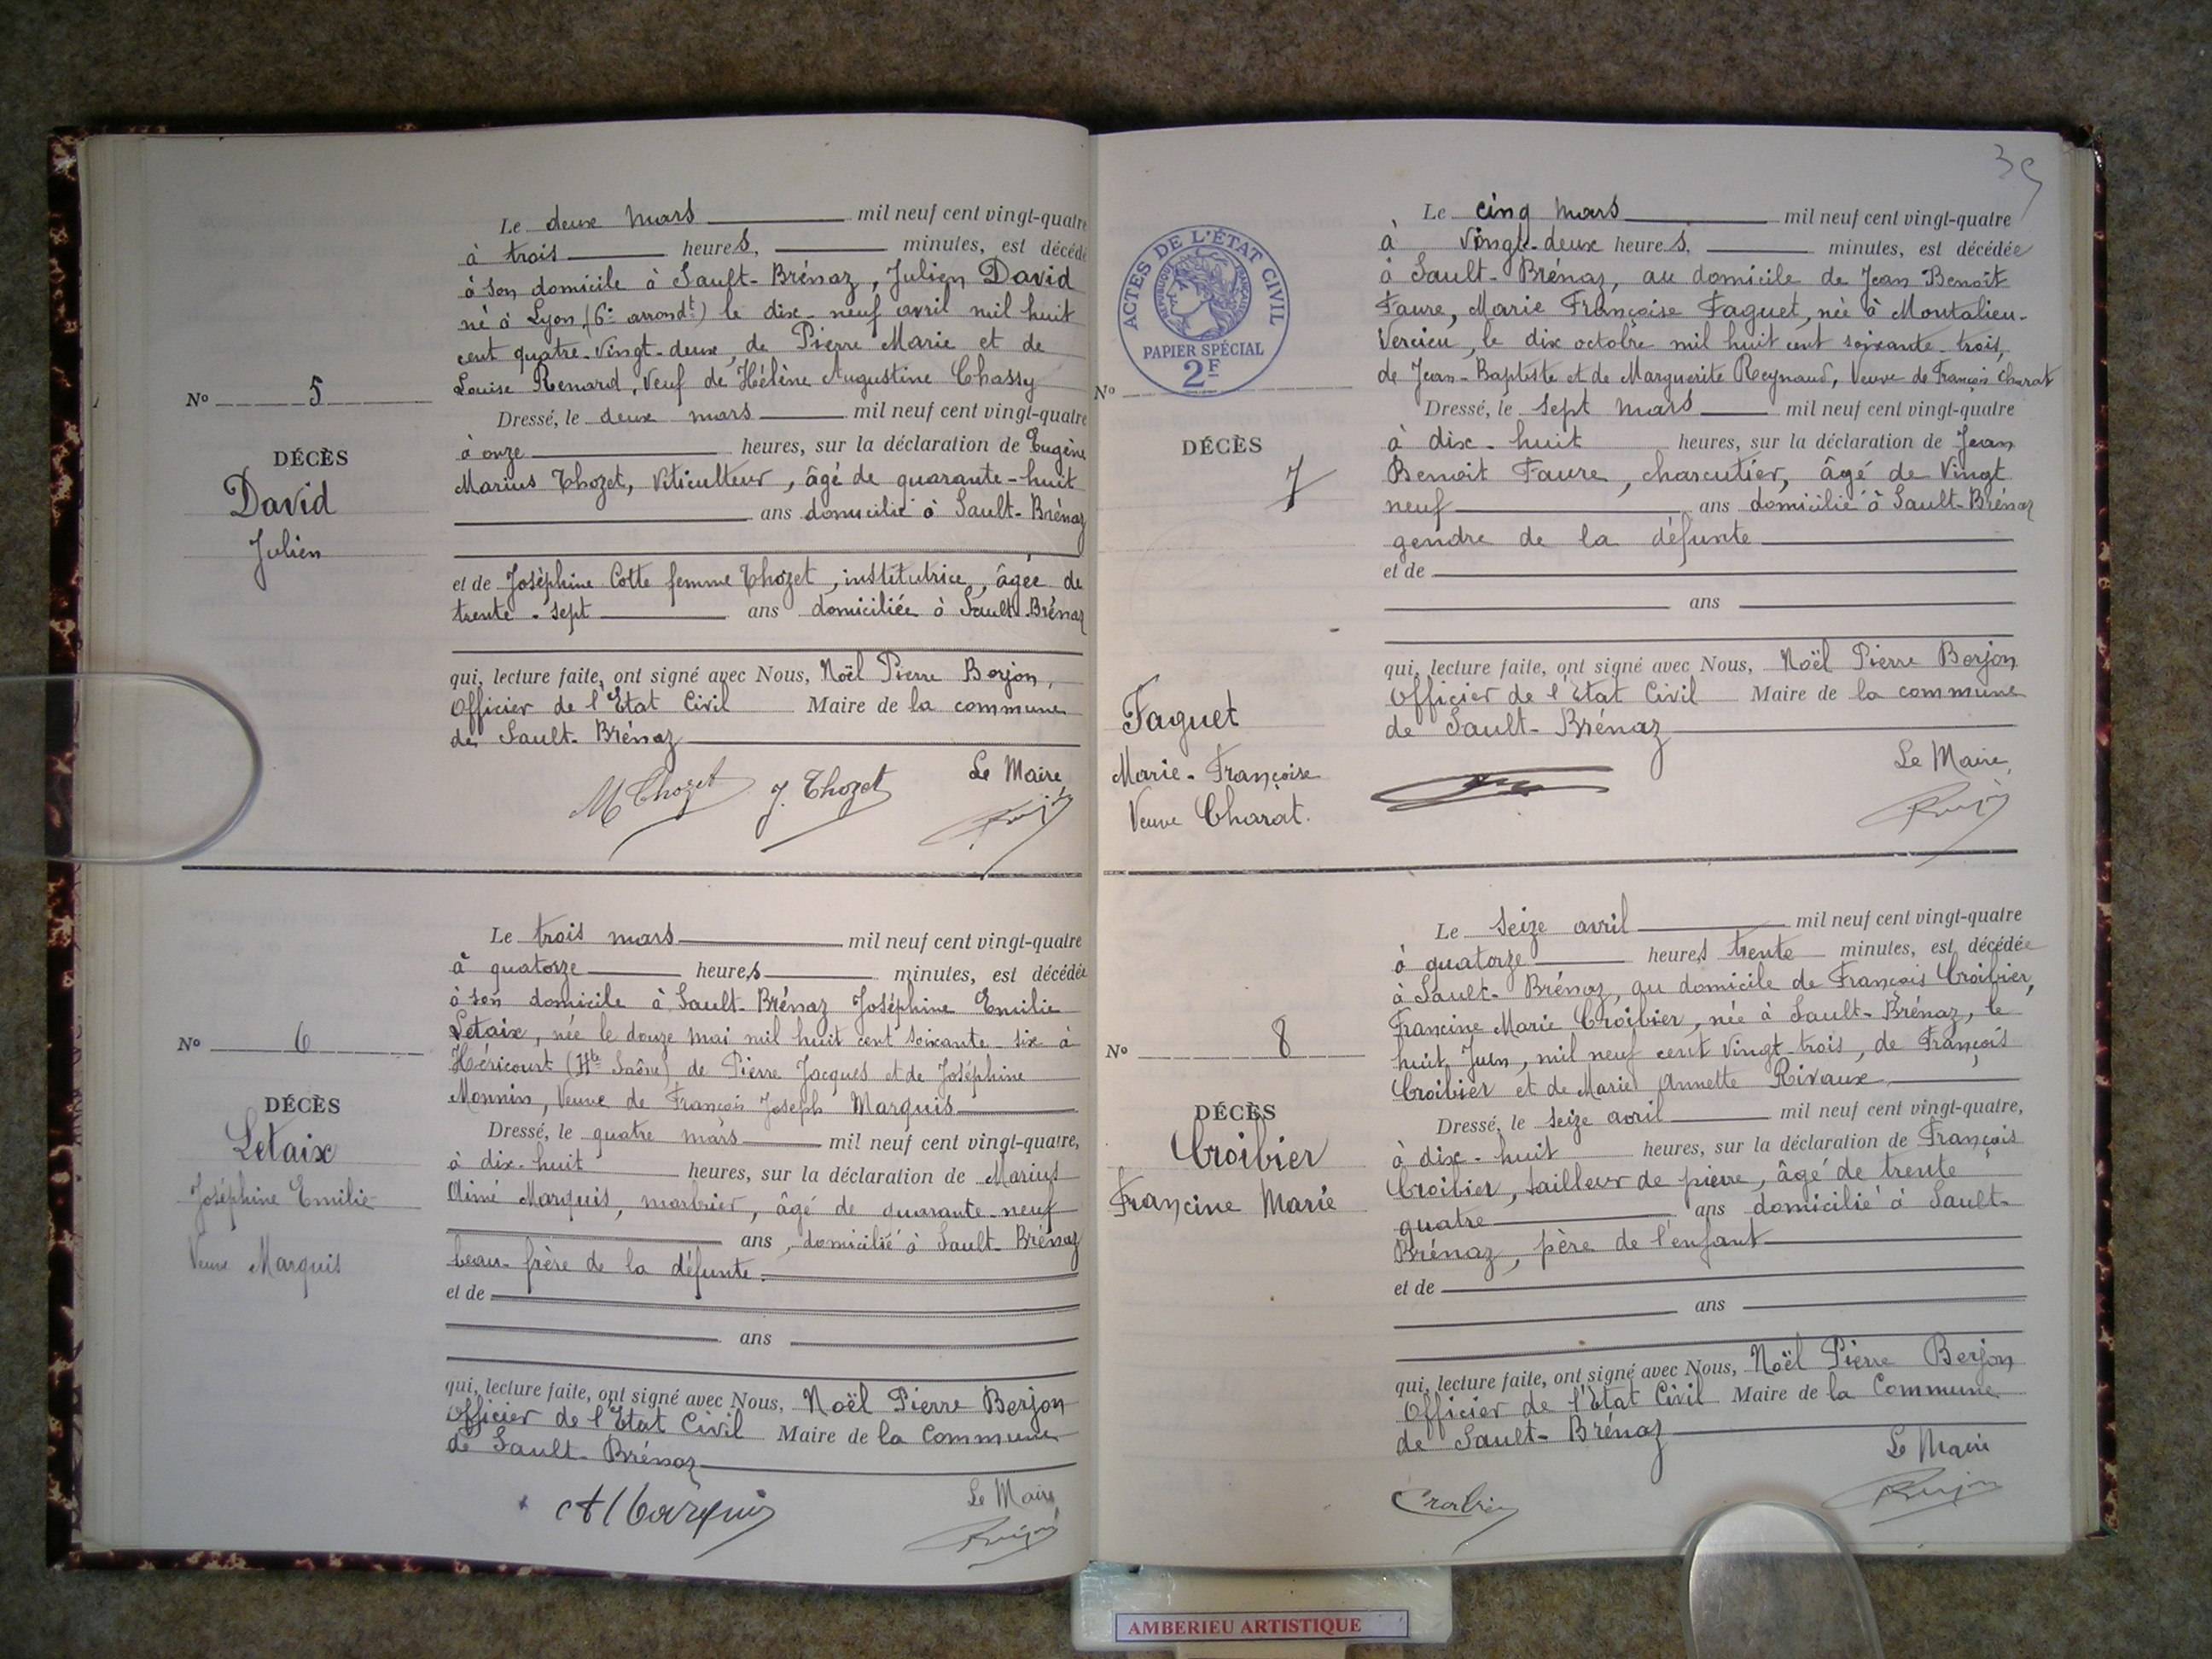 Le deux mars mil neuf cent vingt-quatre
à trois heures, minutes, est décédé
à son domicile à Sault-Brénaz, Julien David
né à Lyon (6e arrondt) le dix-neuf avril mil huit
cent quatre-vingt-deux, de Pierre Marie et de
Louise Renard, Veuf de Hélène Augustine Chassy
No 5
Dressé, le deux mars mil neuf cent vingt-quatre
à onze heures, sur la déclaration de Eugène
DÉCÈS
David
Julien
Marius Thozet, Viticulteur, âgé de quarante-huit
ans domicilié à Sault-Brénaz
et de Joséphine Cotte femme Thozet, institutrice, âgée de
trente-sept ans domiciliée à Sault-Brénaz
qui, lecture faite, ont signé avec Nous, Noël Pierre Berjon,
Officier de l'Etat Civil Maire de la commune
de Sault-Brénaz
Le Maire
M Thozet J. Thozet
Le trois mars mil neuf cent vingt-quatre
à quatorze heures minutes, est décédée
à son domicile à Sault-Brénaz Joséphine Emilie
Letaix, née le douze mai mil huit cent soixante-six à
Héricourt (Hte Saône) de Pierre Jacques et de Joséphine
Monnin, Veuve de François Joseph Marquis
No 6
DÉCÈS
Letaix
Joséphine Emilie
Veuve Marquis
Dressé, le quatre mars mil neuf cent vingt-quatre,
à dix-huit heures, sur la déclaration de Marius
Aimé Marquis, marbrier, âgé de quarante-neuf
ans, domicilié à Sault-Brénaz
beau-frère de la défunte.
et de
ans
qui, lecture faite, ont signé avec Nous, Noël Pierre Berjon
Officier de l'Etat Civil Maire de la Commune
de Sault-Brénaz
Le Maire
A Marquis
39
ACTES DE L'ÉTAT CIVIL
RÉPUBLIQUE FRANÇAISE
PAPIER SPÉCIAL
2F
Le cinq mars mil neuf cent vingt-quatre
à vingt-deux heures, minutes, est décédée
à Sault-Brénaz, au domicile de Jean Benoit
Faure, Marie Françoise Faguet, née à Montalieu-
Vercieu, le dix octobre mil huit cent soixante-trois,
de Jean-Baptiste et de Marguerite Reynaud, Veuve de François Charat
No
DÉCÈS
7
Faguet
Marie-Françoise
Veuve Charat.
Dressé, le sept mars mil neuf cent vingt-quatre
à dix-huit heures, sur la déclaration de Jean
Benoit Faure, charcutier, âgé de Vingt
neuf ans domicilié à Sault-Brénaz
gendre de la défunte
et de
ans
qui, lecture faite, ont signé avec Nous, Noël Pierre Berjon
Officier de l'Etat Civil Maire de la commune
de Sault-Brénaz
Le Maire,
Le seize avril mil neuf cent vingt-quatre
à quatorze heures trente minutes, est décédée
à Sault-Brénaz, au domicile de François Croibier,
Francine Marie Croibier, née à Sault-Brénaz, le
huit Juin, mil neuf cent vingt-trois, de François
Croibier et de Marie Annette Rivaux
No 8
DÉCÈS
Croibier
Francine Marie
Dressé, le seize avril mil neuf cent vingt-quatre,
à dix-huit heures, sur la déclaration de François
Croibier, tailleur de pierre, âgé de trente
quatre ans domicilié à Sault-
Brénaz, père de l'enfant
et de
ans
qui, lecture faite, ont signé avec Nous, Noël Pierre Berjon
Officier de l'Etat Civil Maire de la Commune
de Sault-Brénaz
Le Maire
Croibier
AMBERIEU ARTISTIQUE